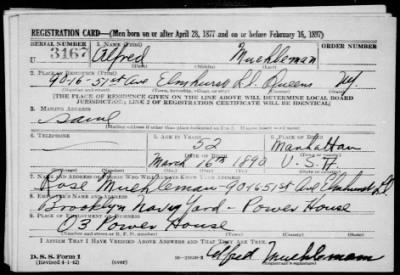 REGISTRATION CARD—(Men born on or after April 28, 1877 and on or before February 16, 1897)
SERIAL NUMBER 1. NAME (Print) ORDER NUMBER
U 3167 Alfred Muehleman
2. PLACE OF RESIDENCE (Print)
90-16-51st Ave Elmhurst L.I. Queens N.Y.
[THE PLACE OF RESIDENCE GIVEN ON THE LINE ABOVE WILL DETERMINE LOCAL BOARD
JURISDICTION; LINE 2 OF REGISTRATION CERTIFICATE WILL BE IDENTICAL]
3. MAILING ADDRESS
Same
4. TELEPHONE 5. AGE IN YEARS 6. PLACE OF BIRTH
52 Manhattan
DATE OF BIRTH
March 16th 1890 U.S.A.
7. NAME AND ADDRESS OF PERSON WHO WILL ALWAYS KNOW YOUR ADDRESS
Rose Muehleman-90-16 51st Ave Elmhurst L.I.
Brooklyn Navy Yard - Power House
9. PLACE OF EMPLOYMENT OR BUSINESS
03 Power House
I AFFIRM THAT I HAVE VERIFIED ABOVE ANSWERS AND THAT THEY ARE TRUE.
D. S. S. Form 1
(Revised 4-1-42) (over) Alfred Muehlemann